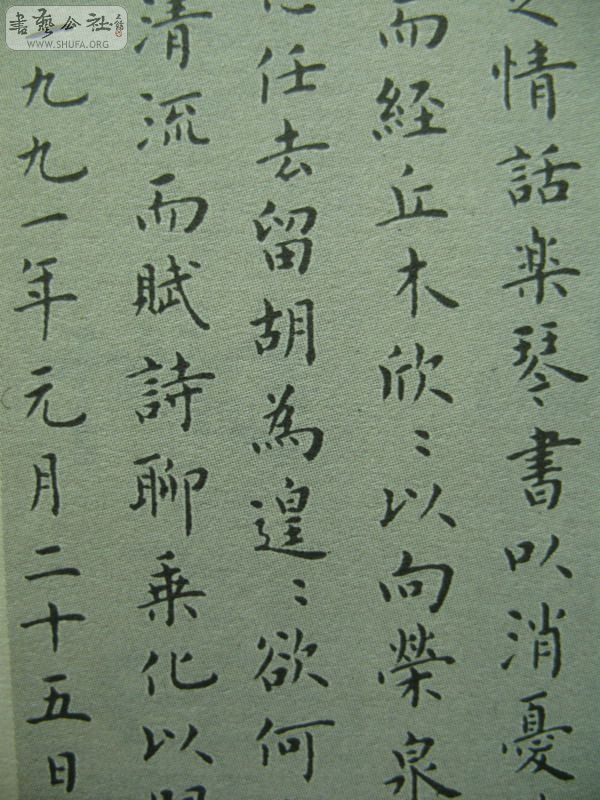 情話楽琴書以消憂
而經丘木欣﹕以向榮泉
任去留胡為遑﹕欲何
清流而賦詩聊乗化以
九九一年元月二十五日
書藝公社
WWW.SHUFA.ORG